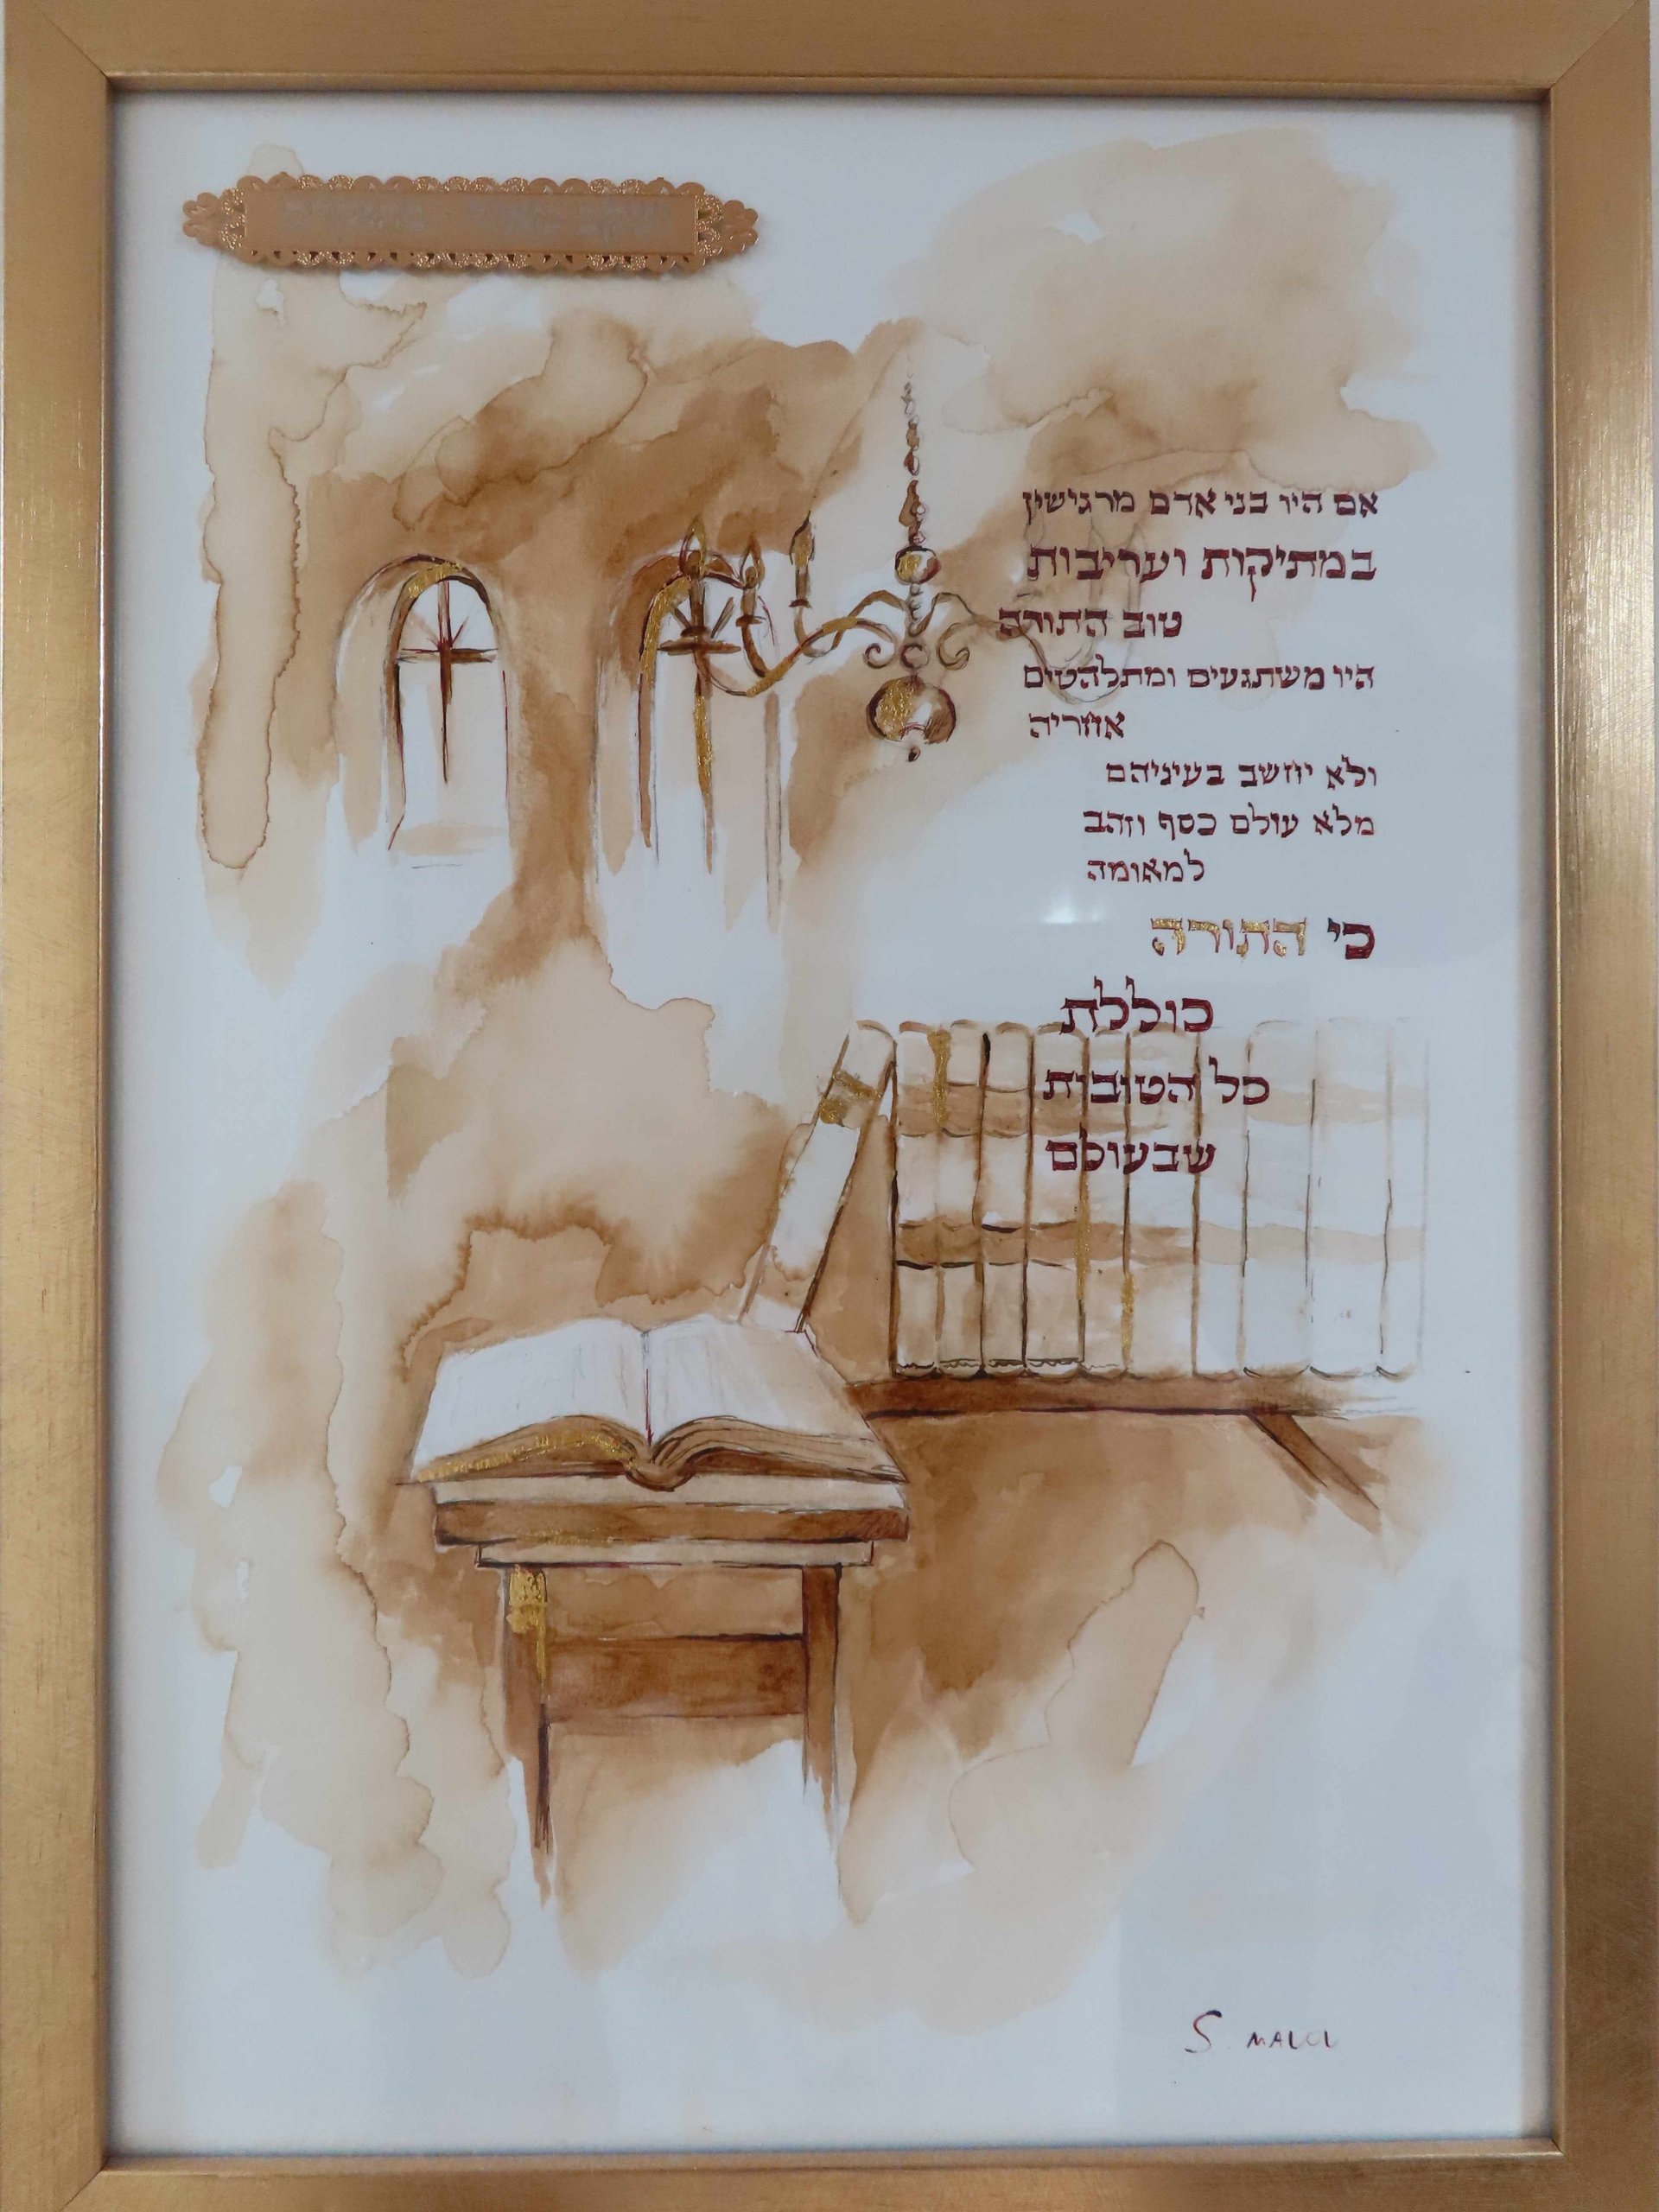 אם היו בני אדם מרגישין
במתיקות ועריבות
טוב התורה
היו משתגעים ומתלהטים
אחריה
ולא יחשב בעיניהם
מלא עולם כסף וזהב
למאומה
כי התורה
כוללת
כל הטובות
שבעולם
S MALCI